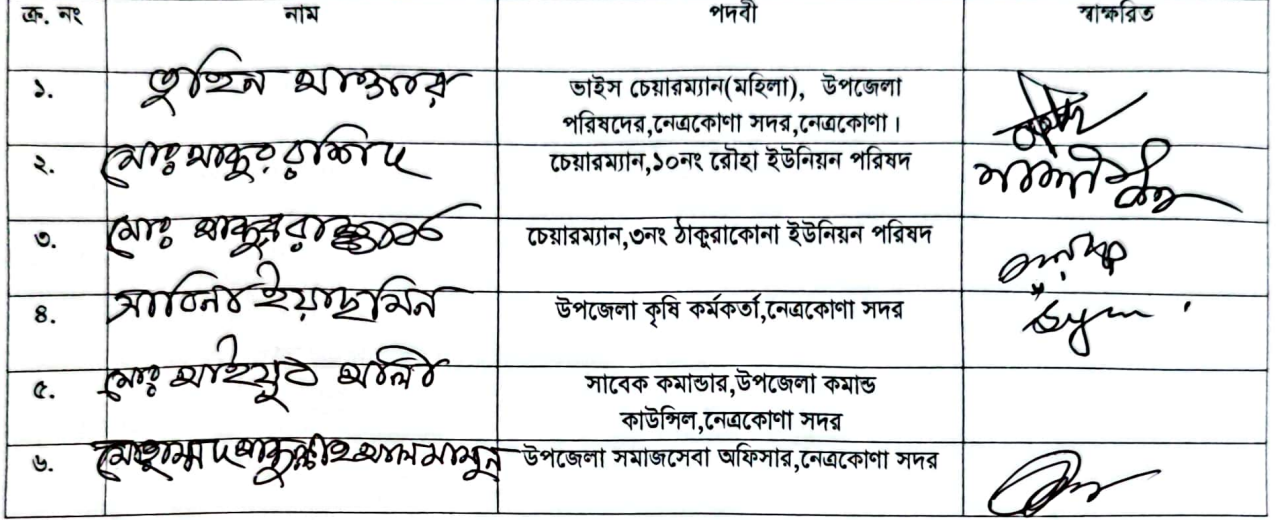 ক্র. নং নাম পদবী স্বাক্ষরিত
১. তুহিন আক্তার ভাইস চেয়ারম্যান(মহিলা), উপজেলা
পরিষদের,নেত্রকোণা সদর,নেত্রকোণা।
২. মোঃ আব্দুর রশিদ চেয়ারম্যান,১০নং রৌহা ইউনিয়ন পরিষদ
৩. মোঃ আব্দুর রাজ্জাক চেয়ারম্যান,৩নং ঠাকুরাকোনা ইউনিয়ন পরিষদ
৪. সাবিনা ইয়াছমিন উপজেলা কৃষি কর্মকর্তা,নেত্রকোণা সদর
৫. মোঃ আইয়ুব আলী সাবেক কমান্ডার,উপজেলা কমান্ড
কাউন্সিল,নেত্রকোণা সদর
৬. মোহাম্মদ আব্দুল্লাহ আল মামুন উপজেলা সমাজসেবা অফিসার,নেত্রকোণা সদর